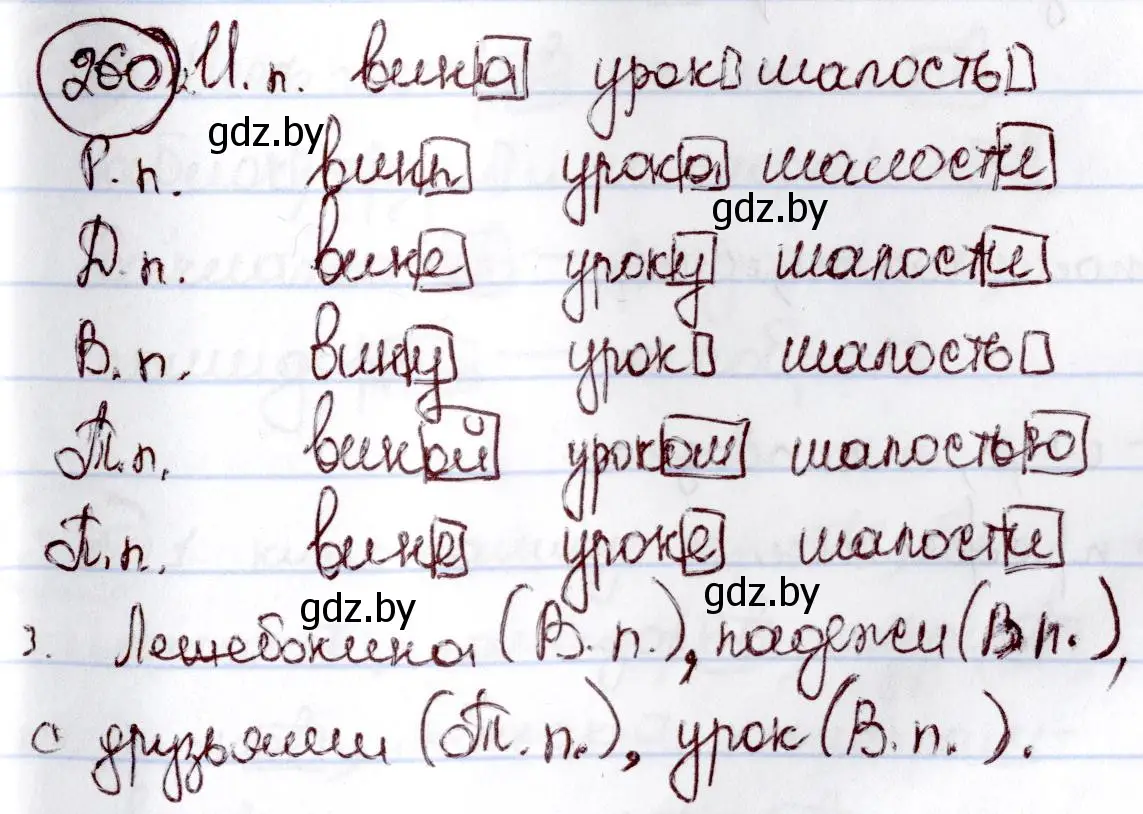 260 2. И. п. вина урок шалость
gdz.by
Р. п. вин урока шалости
gdz.by
Д. п. вине уроку шалости
В. п. вину урок шалость
Т. п. виной уроком шалостью
П. п. вине уроке шалости
gdz.by
gdz.by
3. Лежебокина (В. п.), падежи (В п.),
с друзьями (Т. п.), урок (В. п.).